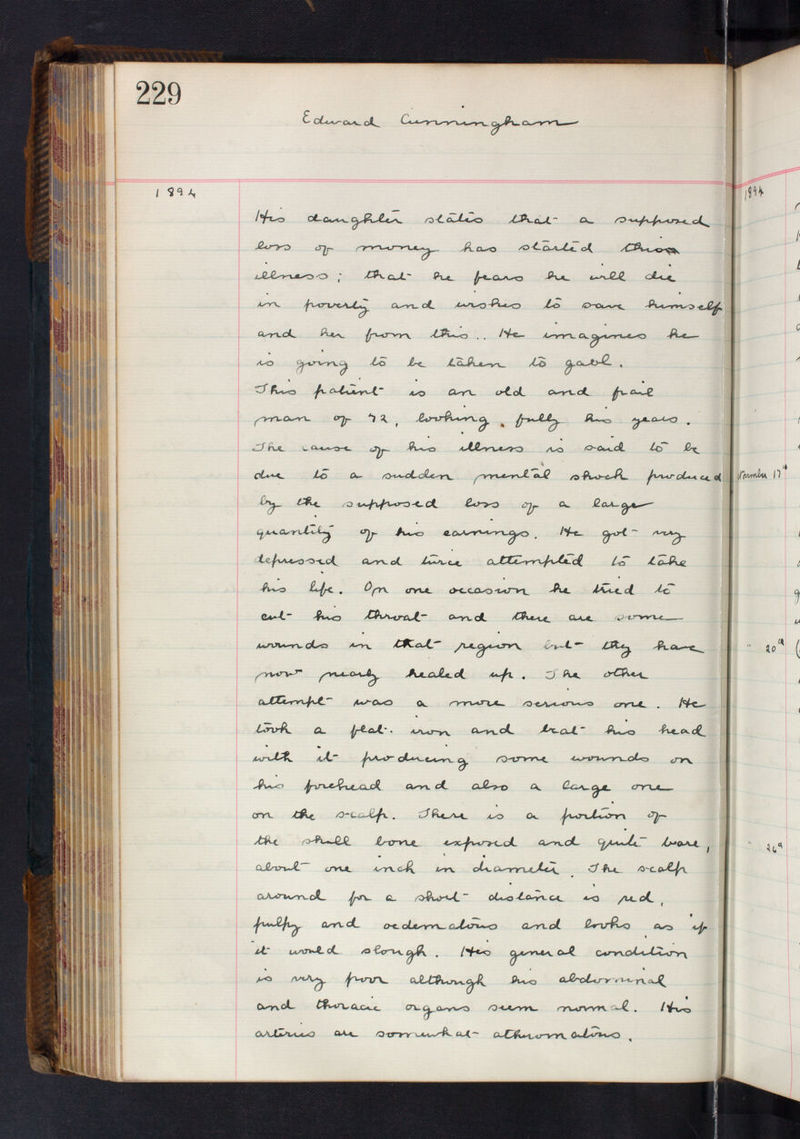 229
Edward Cunningham
1894
His daughter states that a supposed
loss of money has started this
illness; that he fears he will die
in poverty and wishes to save himself
and her from this.. He imagines he
is going to be taken to gaol.
This patient is an old and frail
man of 72, looking fully his years.
The cause of his illness is said to be
due to a sudden mental shock produced
by the supposed loss of a large
quantity of his earnings. He got very
depressed and twice attempted to take
his life. On one occasion he tried to
cut his throat and there are some
wounds in that region but they have
now nearly healed up. The other
attempt was a more serious one. He
took a flat. iron and beat his head
with it producing some wounds on
his forehead and also a large one
on the scalp. There is a portion of
the skull bone exposed and quite bare,
about one inch in diameter. The scalp
around for a short distance is red,
pulpy and oedematous and looks as if
it would slough. His general condition
is very poor although his abdominal
and thoracic organs seem normal. His
arteries are somewhat atheromatous.
1894
17th
" 20th
" 26th